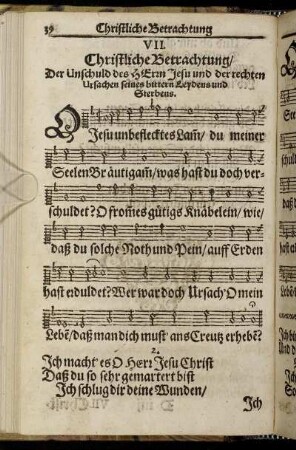 39 Christliche Betrachtung
VII.
Christliche Betrachtung/
Der Unschuld des HErrn Jesu und der rechten
Ursachen seines bittern Leydens und
Sterbens.
O Jesu unbeflecktes Lam̃/ du meiner
Seelen Bräutigam̃/was hast du doch ver-
schuldet? O from̃es gütigs Knäbelein/ wie/
daß du solche Noth und Pein/ auff Erden
hast erduldet? Wer war doch Ursach/ O mein
Lebẽ/ daß man dich must' ans Creutz erhebẽ?
2.
Ich macht' es O Herr Jesu Christ
Daß du so sehr gemartert bist
Ich schlug dir deine Wunden/
Ich